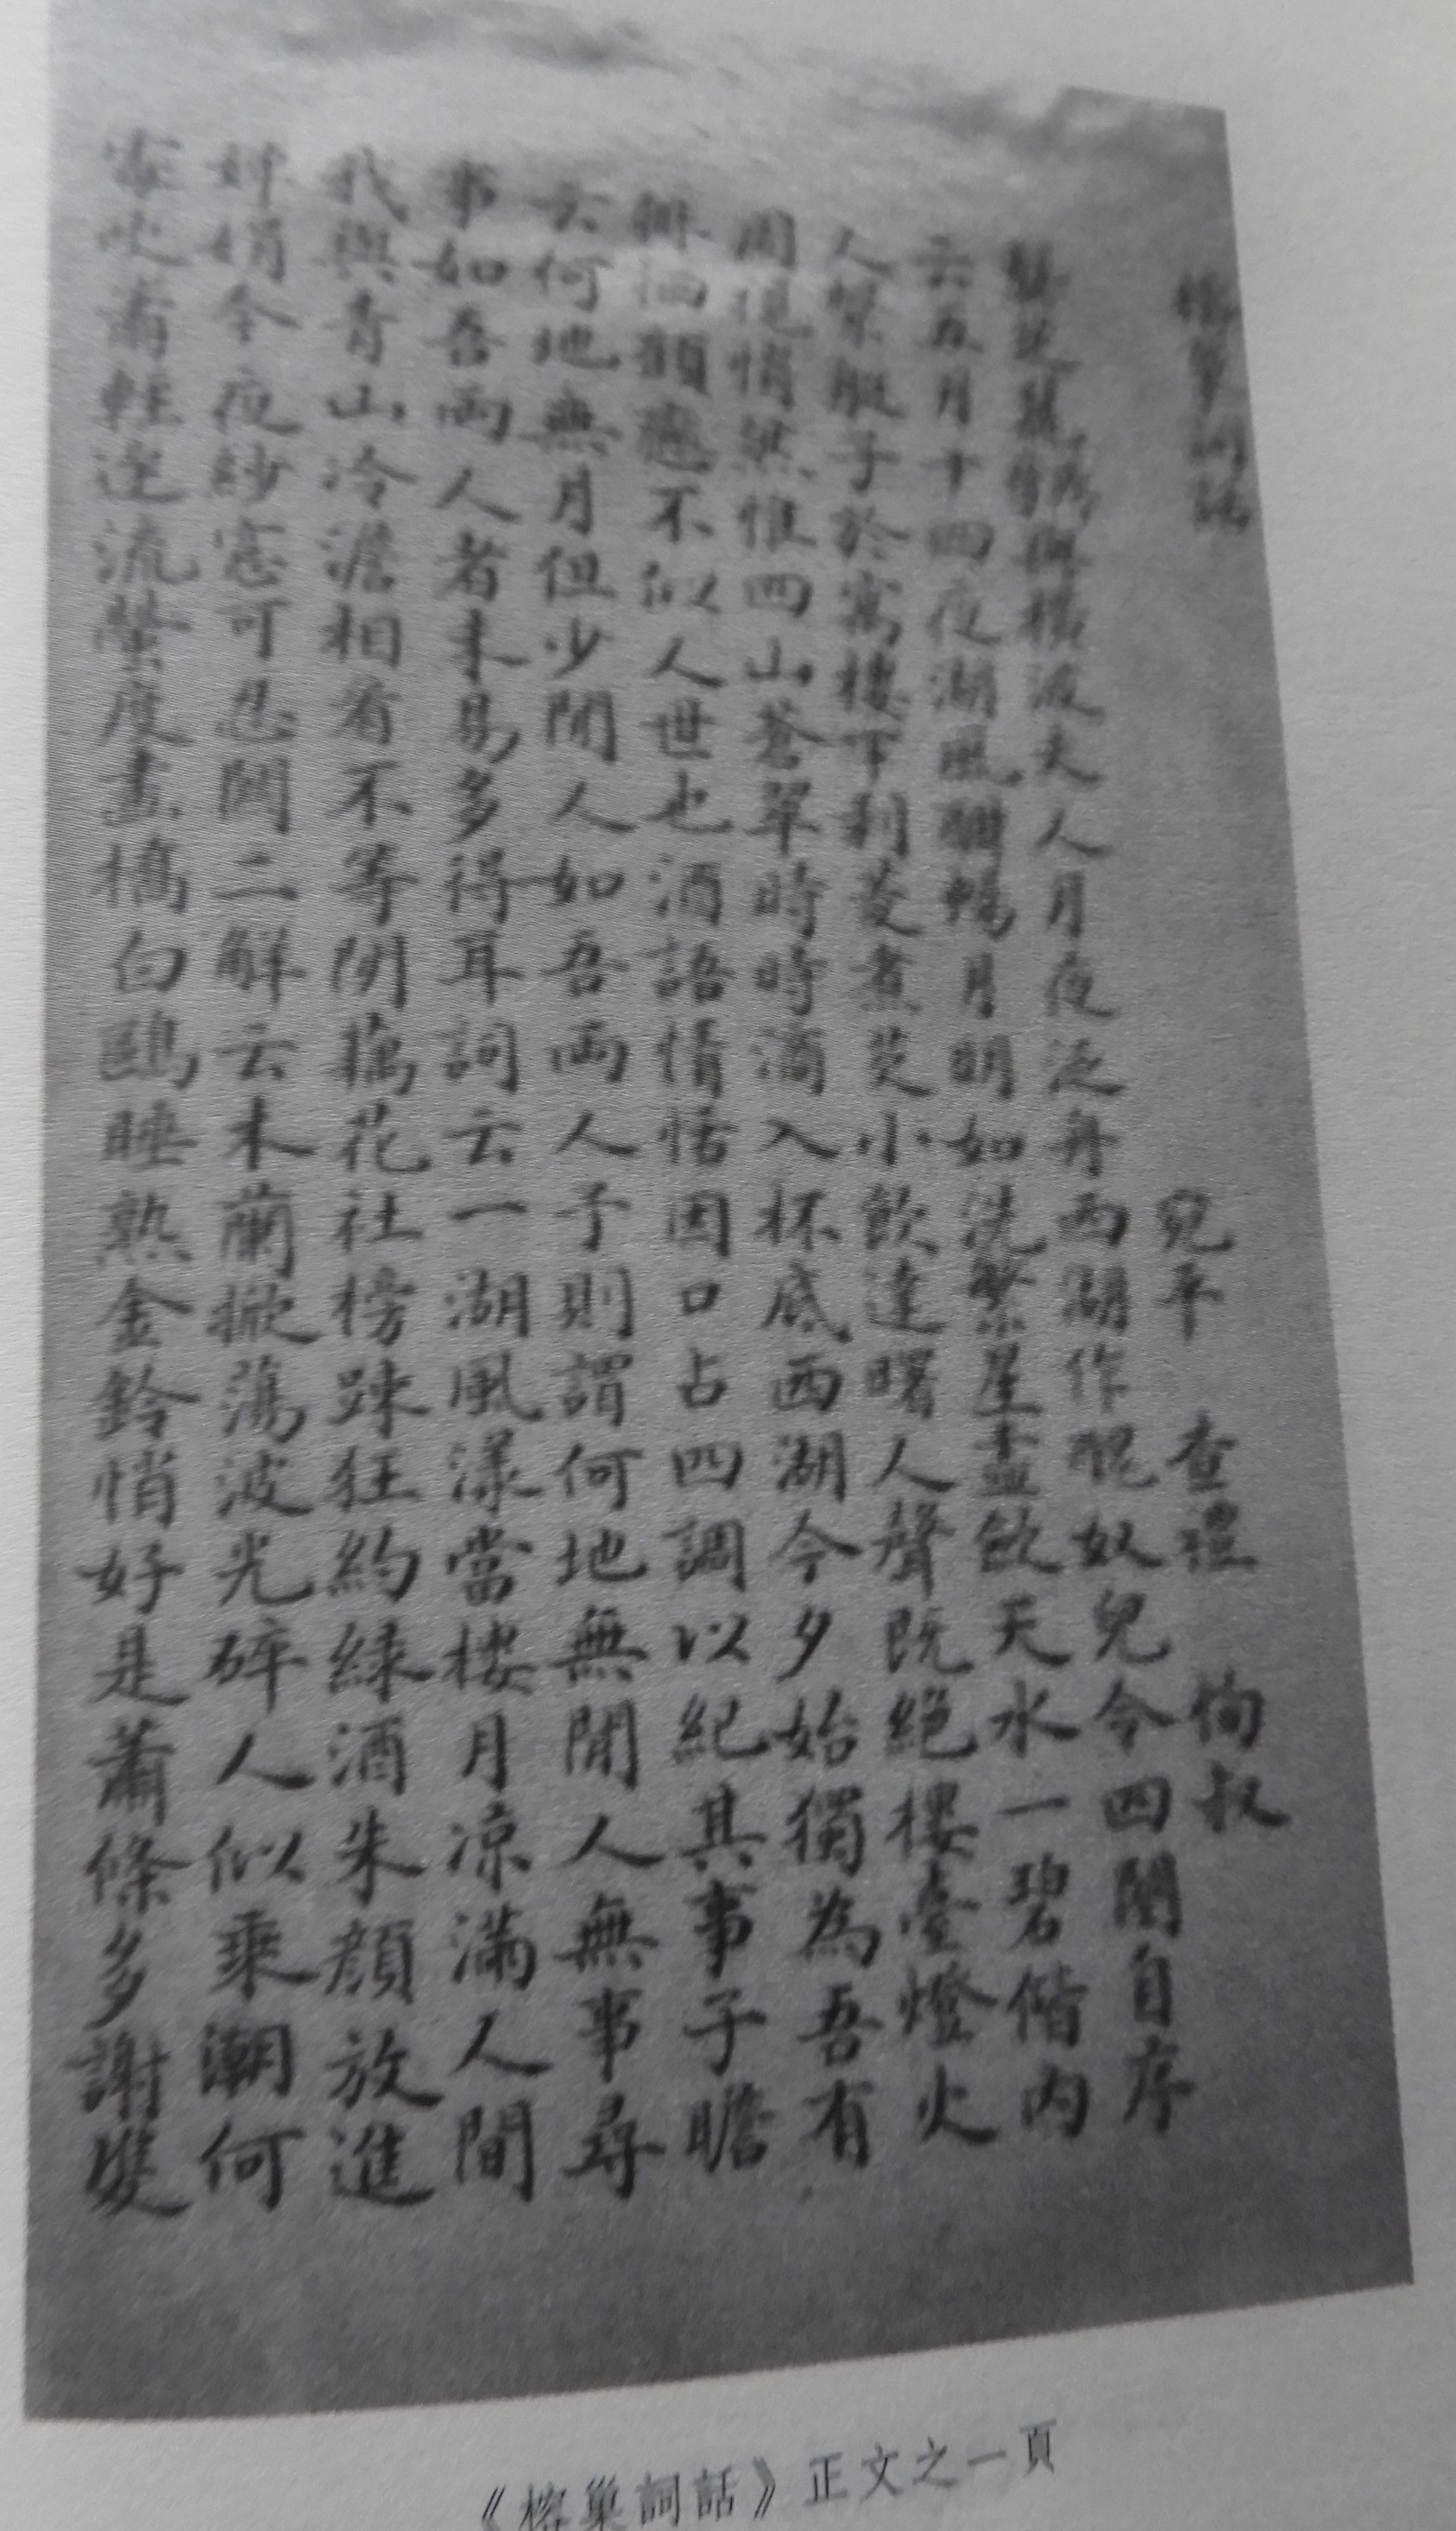 榕巢詞話
宛平 查禮 恂叔
龔芝麓 與橫波夫人月夜泛舟西湖作醜奴兒令四闋自序
云五月十四夜湖風酣暢月明如洗繁星盡斂天水一碧偕內
人繫艇子於寓樓下剝菱煮芡小飲達曙人聲既絕樓臺燈火
周視悄然惟四山蒼翠時時滴入杯底西湖今夕始獨為吾有
徘徊顧戀不似人世也酒語情恬因口占四調以紀其事子瞻
云何地無月但少閒人如吾兩人予則謂何地無閒人無事尋
事如吾兩人者未易多得耳詞云一湖風漾當樓月凉滿人間
我與青山冷澹相看不等閒藕花社榜踈狂約綠酒朱顏放進
嬋娟今夜紗窓可忍關二解云木蘭掀蕩波光碎人似乘潮何
處吹簫輕逐流螢度畫橋白鷗睡熟金鈴悄好是蕭條多謝雙
《榕巢詞話》正文之一頁